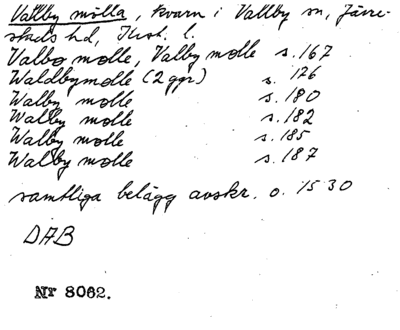 Vallby mölla, kvarn i Vallby sn, Järre-
stads hd, Krist. l.
Valbo mølle, Valby mølle s. 167
Waldbymølle (2 ggr) s. 176
Walby mølle s. 180
Walby mølle s. 182
Walby mølle s. 185
Walby mølle s. 187
samtliga belägg avskr. o. 1530
DAB
Nr 8062.